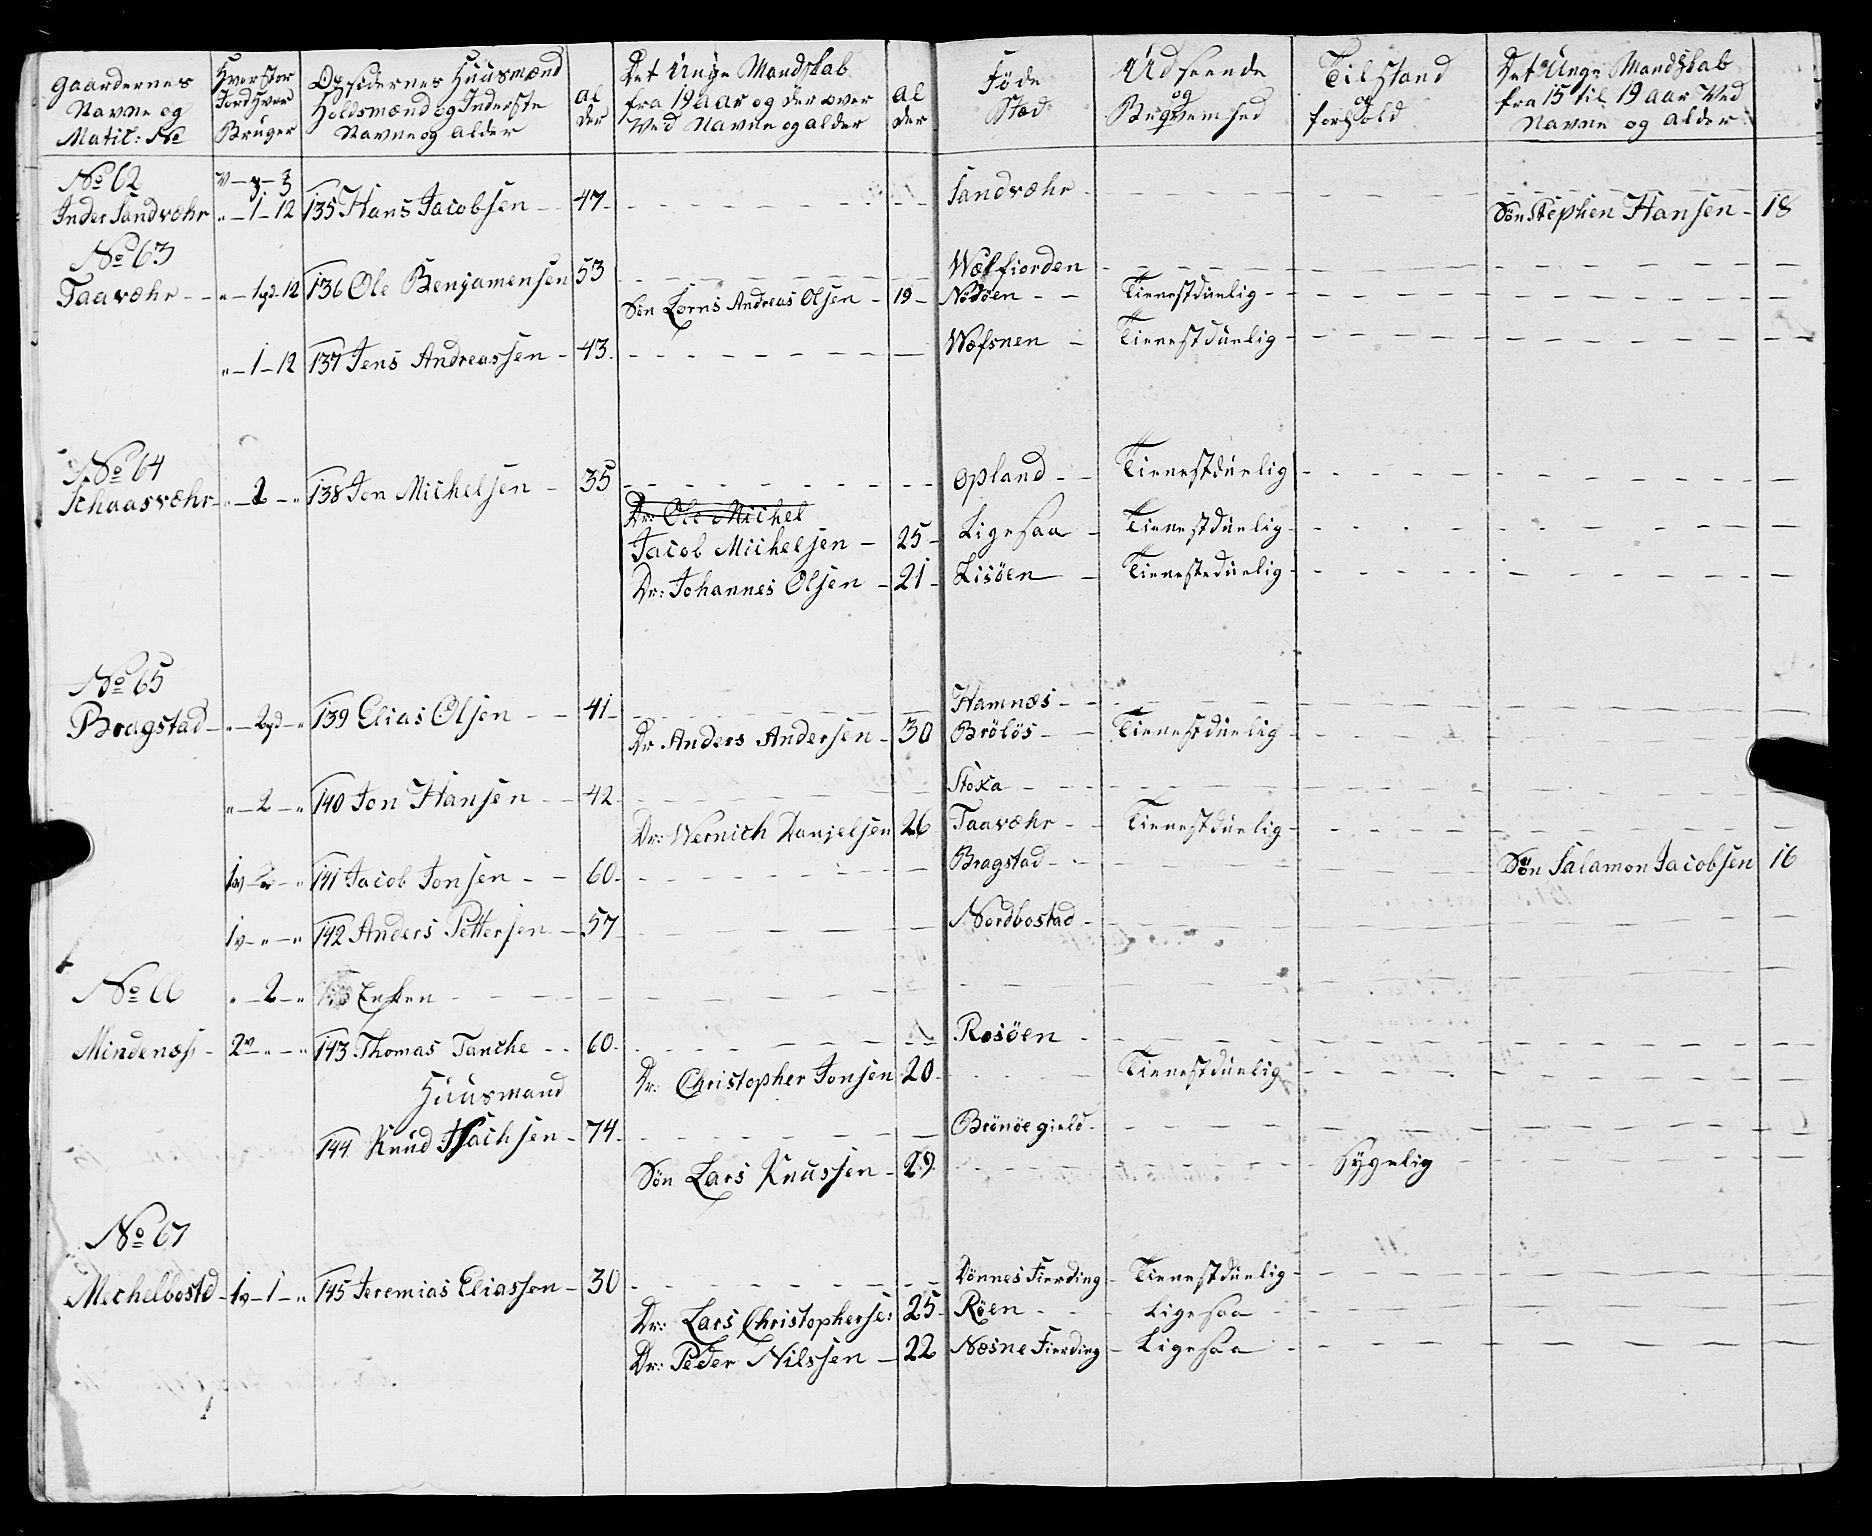 Gaardernes Navne og Matic: No | Hver stor Jord hver Bruger | Opsidernes Huusmænd Holdsmænd og Inderste Navne og alder | al der | Det Unge Mandskab fra 19 aar og der over Ved Navne og alder | al der | Føde Stæd | Udseende og Beqvemhed | Tilstand og forhold | Det Unge Mandskab fra 15 til 19 aar Ved Navne og alder
No 62
Inder Sandvæhr „ – 1 – 12 135 Hans Jacobsen 47 Sandvæhr Søn Stephen Hansen 18
No 63
Taavæhr 12 136 Ole Benjamensen 53 Wælfiorden
Søn Lorns Andreas Olsen 19 Tienestduelig
„ – 1 – 12 137 Jens Andreassen 43 Wæfsnen Tienestduelig
No 64
Schaasværhr „ – 2 – „ 138 Jon Michelsen 35 Opland Tienestduelig
Dr: Ole Michel
Jacob Michelsen 25 Ligesaa Tienestduelig
Dr: Johannes Olsen 21 Lisöen Tienestduelig
No 65
Bragstad 139 Elias Olsen 41 Hamnæs
Dr Anders Andersen 30 Brölös Tienestduelig
„ – 2 – „ 140 Jon Hansen 42 Stoka
Dr: Wernich Danjelsen 26 Taavæhr Tienestduelig
141 Jacob Jonsen 60 Bragstad Søn Salamon Jacobsen 16
1v – „ – „ 142 Anders Pettersen 57 Nordbostad
No 66 „ – 2 – „ Enken
Mindenæs 2v – „ – „ 143 Thomas Tanche 60 Rosöen
Dr: Christopher Jonsen 20 Tienestduelig
Huusmand
144 Knud 74 Brönöe gield
Søn Lars Knussen 29 sygelig
No 67
Mechelbostd 1v – 1 – „ 145 Jeremias Eliassen 30 Dönnes Fierding Tienestduelig
Dr: Lars Christophersen 25 Röen Ligesaa
Dr: Peder Nilssen 22 Næsne Fierding Ligesaa